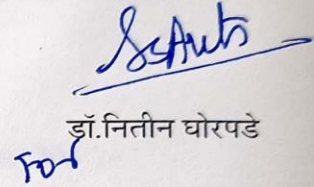 डॉ.नितीन घोरपडे
For